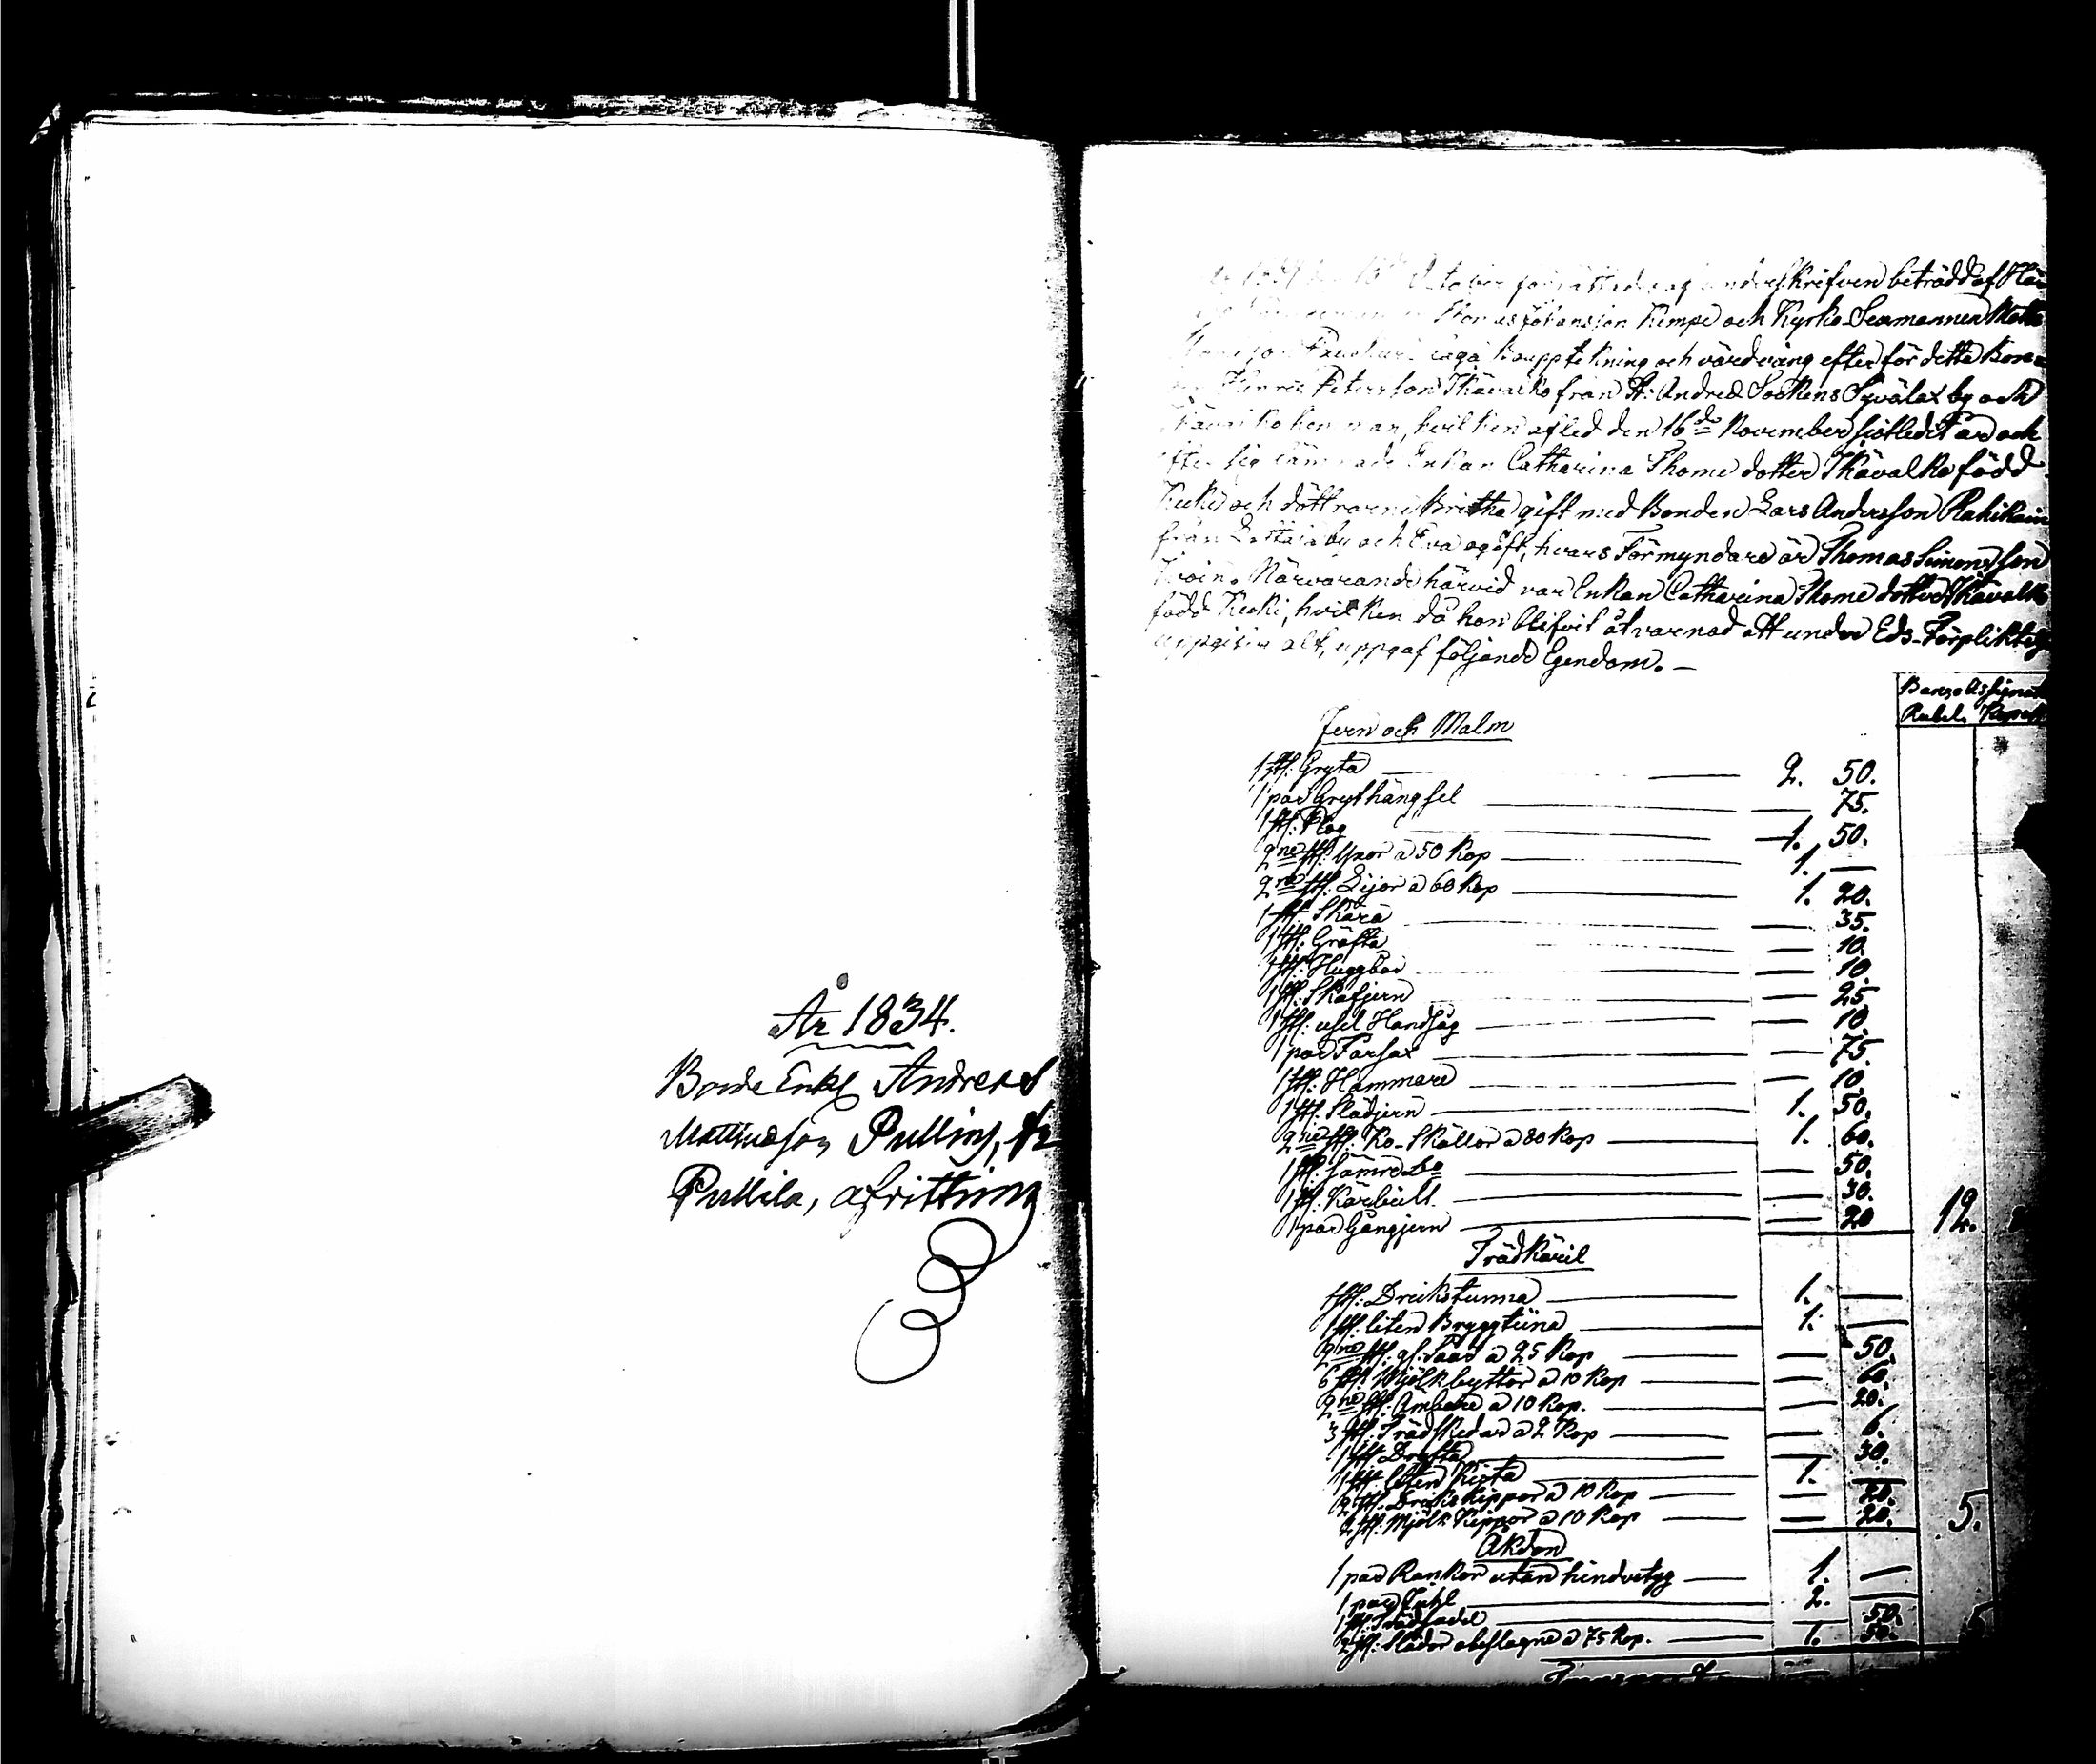 År 1834.
Bonde Enkl Andreas
Mattinson Pulling, fr
Pullila, afvittring
1834 den October förrättades af underskrifven beträdd af Hä
Thomas Johansson Kimpe och Kyrko-Sexmannen Matts
laga Bouppteckning och värdering efter för detta Bon-
Henric Petersson Skävalko från St: Andreæ Sockens Syvälax by och
hemman, hvilken afled den 16de November sistledit år och
efter sig lämnade Enkan Catharina Thome dotter Skävalko född
Kecki och döttrarne Britha gift med Bonden Lars Andersson Rahikain
från by och Eva ogift, hvars Förmyndare är Thomas Simonsson
Närvarande härvid var Enkan Catharina Thome dotter Skävalko
född Kecki, hvilken då hon blifvit åtvarnad att under Eds-Förpliktelse
uppgifva alt, uppgaf följande Egendom. —
Banco Assignat
Rubel. Kopek
Jern och Malm
1 st: Gryta — 2. 50.
1 par Grythängsel — 75.
1 st: Plog — 1. 50.
2ne st: Yxor a 50 Kop — 1. —
2ne st: Lijor a 60 Kop — 1. 20.
1 st: Skära — 35.
1 st: Gräfta — 10.
1 st: Huggbar — 10.
1 st: Skafjern — 25.
1 st: usel Handsåg — 10.
1 par Fårsax — 75.
1 st: Hammare — 10.
1 st: Slädjern — 1. 50.
2ne st: Ko-Skällor a 80 Kop — 1. 60.
1 st: sämre Do — 50.
1 st: Kärbult. — 30.
1 par Gångjern — 20 12.
Trädkäril
1 st: Drickstunna — 1. —
1 st: liten Bryggtüna — 1. —
2ne st: gl: Såar a 25 Kop — 50.
6 st: Mjölkbyttor a 10 Kop — 60.
2ne st: Ämbare a 10 Kop. — 20.
3 st: Trädskedar a 2 Kop — 6.
1 st: Dryfta — 30.
1 st: liten Kista — 1. —
2 st: Dricks Kippor a 10 Kop — 20.
2 st: Mjölk Kippor a 10 Kop — 20. 5.
Åkdon
1 par Rankor utan hindvetyg — 1. —
1 par — 2. —
1 st: Trädsadel — 50.
2 st: Slädor obeslagne a 75 Kop. — 1. 50. 5
Transport